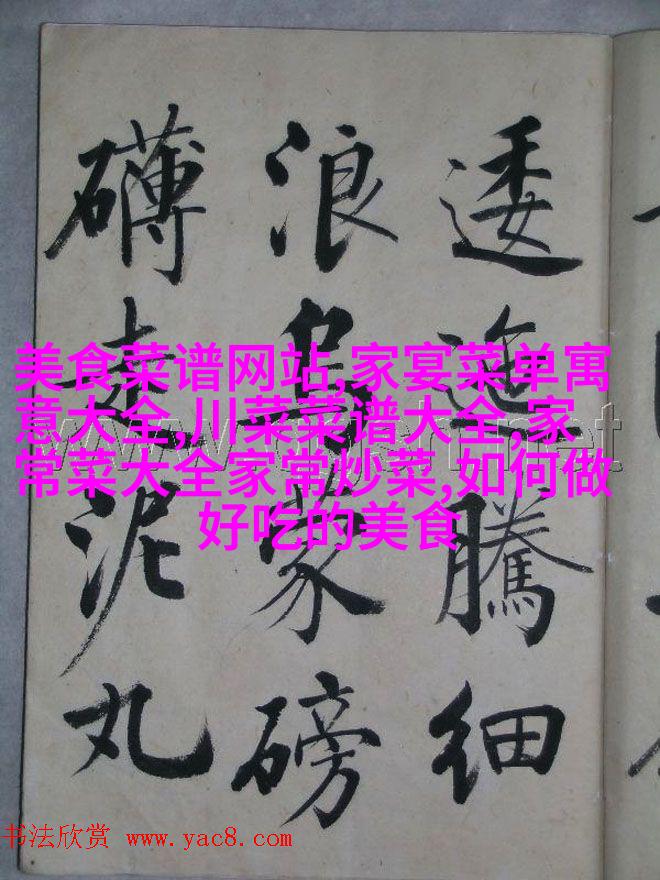 逶迤騰細
浪烏蒙磅
礴走泥丸
美食菜谱网站,家宴菜单寓
意大全,川菜菜谱大全,家
常菜大全家常炒菜,如何做
好吃的美食
书法欣赏 www.yac8.com